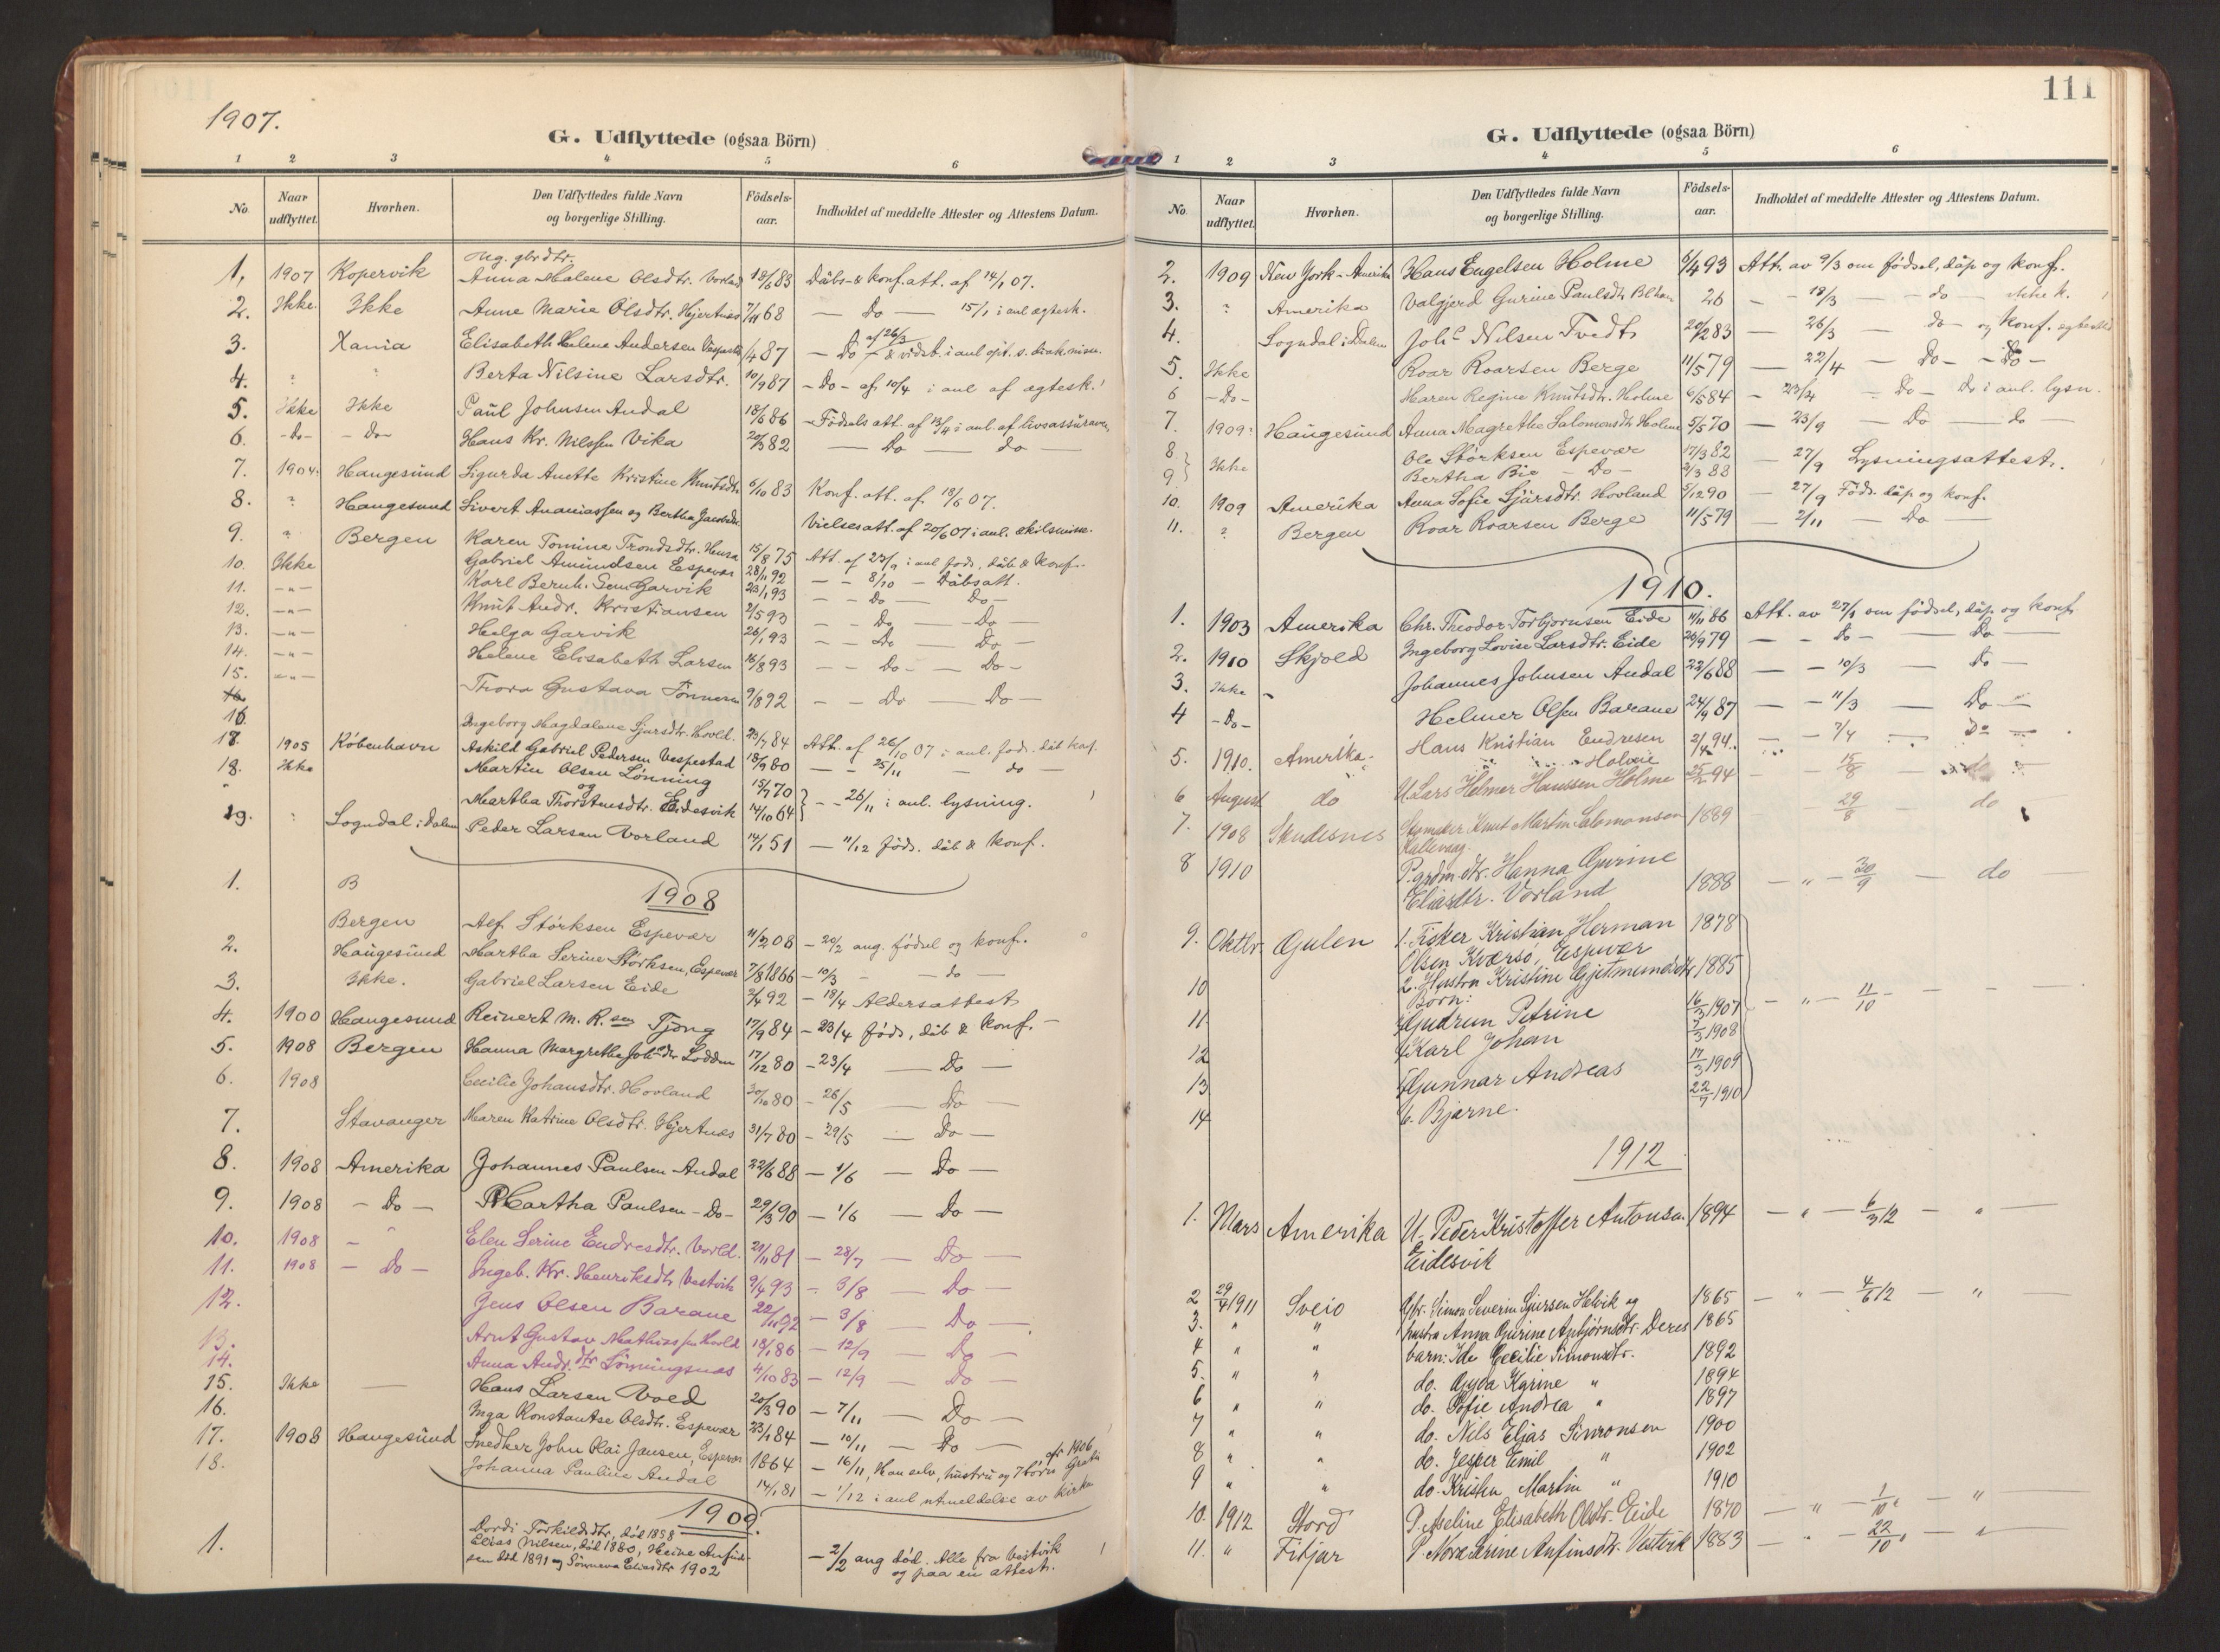 1907.
G. Udflyttede (ogsaa Börn)
1 2 3 4 5 6
No. Naar udflyttet. Hvorhen. Den Udflyttedes fulde Navn og borgerlige Stilling. Födselsaar. Indholdet af meddelte Attester og Attestens Datum.
1, 1907 Kopervik Anna Malene Olsdtr. 18/6 83 Dåbs- & Konf. att. af 14/1 07.
2. Ikke. Ikke Anne Marie Olsdtr. Hjertnes 7/11 68 — Do — 15/1 i anl ægtesk.
3. Xania Elisabeth Helene Andersen 1/4 87 — Do
4. " " Berta Nilsine Larsdtr. 10/9 87 – Do – af 10/4 i anl af ægtesk.
5. Ikke Ikke Paul Johnsen Andal 18/6 86 – Födsels att. af 13/4 i anl. af livsassuranse
6. –do– – do– Hans Kr. Nilssen Vika 20/3 82 — Do — do —
7. 1904. Haugesund Sigurda Anette Kristine Knutsdtr 6/10 83 Konf. att. af 18/6 07.
8. " Haugesund Sivert Ananiassen og Bertha Vielsesatt. af 20/6 07 i anl. skilsmisse.
9. " Bergen Karen Tomine Trondsdtr. 15/8 75 Att. af 27/9 i anl föds, dåb & Konf.
10. Ikke Gabriel Amundsen Espevær 28/11 92 – – 8/10 – Dåbsatt.
11. –"– Karl Bernh. Garvik 23/1 93 – – Do — Do–
12. –"– Knut Andr. Kristiansen 2/5 93 – – Do — Do–
13. –"– Helga Garvik 26/1 93 – Do — Do–
14. –"– Helene Elisabeth Larsen 16/8 93 – – Do– — Do–
15. –"– Thora Gustava Tönnesen 9/8 92 – – Do — Do –
16 Ingeborg Magdalene Sjursdtr. Hovld. 23/7 84 Att. af 26/10 07 i anl. föds. dåb konf.
17. 1905 København Askild Gabriel Pedersen Vespestad 18/9 80 — – 25/11 — do —
18. Ikke Martin Olsen Lönning 15/7 70
og
Martha Thorstensdtr. Eidesvik 14/10 64 – – 26/11 i anl. lysning.
19. " Sogndal i Dalen Peder Larsen Vorland 14/1 51 — 11/12 föds. dåb & Konf.
1908
1. B
Bergen Alf Störksen Espevær 11/2 08 – 20/2 ang. födsel og konf.
2. Haugesund Martha Serine Störksen, Espevær 7/8 1866 – 10/3 – — do —
3. Ikke. Gabriel Larsen Eide 2/4 92 – 18/4 Aldersattest
4. 1900 Haugesund Reinert M. R.sen Tjong 17/9 84 – 23/4 föds, dåb & konf. –
5. 1908 Bergen Hanna Margrethe Joh.dtr Lodden 17/12 80 – 23/4 — Do —
6. 1908 Cecilie Johansdtr. Hovland 30/10 80 – 26/5 — Do —
7. Stavanger Maren Katrine Olsdtr. Hjertnes 31/7 80 – 29/5 — Do —
8. 1908 Amerika Johannes Paulsen Andal 22/6 88 – 1/6 — Do —
9. 1908 – Do – Martha Paulsen – Do – 29/3 90 – 1/6 — Do —
10. 1908 – " Elen Serine Endresdtr. Vorld. 21/11 81 – 28/7 — Do —
11. 1908 – Do – Ingeb. Kr. Henriksdtr Vestvik 9/4 93 – 3/8 — Do —
12. Jens Olsen Barane 22/11 92 – 3/8 — Do —
13. Arnt Gustav Mathiassen Hovld 18/1 86 – 12/9 — Do —
14. Anna Andr.dtr Lönningsnes 4/10 83 – 12/9 — Do —
15. Ikke — Hans Larsen Vold 20/3 90 – 7/11 — Do —
16. Inga Konstantse Olsdtr. Espevær 23/1 84 – 10/11 – Do —
17. 1908 Haugesund Snedker John Olai Jansen, Espevær 1864 – 16/11, Han selv, hustru og 7 börn
18. Johanna Pauline Andal 14/1 81 – 1/12 i anl utmeldelse av kirken
1909.
1. Dordi Torkildsdtr, död 1858
Elias Nilsen, död 1880, Heine Anfin-
sen död 1891 og Sönneva Eliasdtr 1902 – 2/2 ang död. Alle fra Vestvik
og paa en attest.
111
G. Udflyttede (ogsaa Börn)
1 2 3 4 5 6
No. Naar udflyttet. Hvorhen. Den Udflyttedes fulde Navn og borgerlige Stilling. Födselsaar. Indholdet af meddelte Attester og Attestens Datum.
2. 1909 New York – Amerika Hans Engelsen Holme 6/4 93 Att. av 9/3 om födsel, dåp og konf.
3. " Amerika Valgjerd Gurine Paulsdtr 26 – – 18/3 – do –
4. Sogndal i Dalen Johs Nilsen Tvedt 20/2 83 — 26/3 — do – og konf.
5. Ikke Roar Roarsen Berge 11/5 79 — 22/4 — Do – – Do –
6 – Do – Maren Regine Knutsdtr. Holme 6/5 84 – 23/4 – Do – Do i anl. lysn.
7. 1909 Haugesund Anna Magrethe Salomonsdtr Holme 5/5 70 — 23/9 — Do — do —
8. Ikke Ole Störksen Espevær 17/3 82 — 27/9 Lysningsattest.
9. Bertha Bie – Do – 2/3 88
10. 1909 Amerika Anna Sofie Sjursdtr. Hovland 5/12 90 — 27/9 Föds. dåp og konf.
11. " Bergen Roar Roarsen Berge 11/5 79 – 2/11 — Do —
1910.
1. 1903 Amerika Chr. Theodor Torbjornsen Eide 11/11 86 Att. av 27/1 om födsel, dåp og konf.
2. 1910 Skjold Ingeborg Lovise Larsdtr. Eide 20/9 79 — – Do – — Do —
3. Ikke – Johannes Johnsen Andal 22/6 88 — – 10/3 — Do —
4 – Do – Helmer Olsen Barane 24/9 87 — – 11/3 — Do —
5. 1910. Amerika. Hans Kristian Endresen 2/4 94. 7/4 Do
Holme
6 August do U. Lars Helmer Hanssen Holme 25/2 94 – – 15/8 –
7. 1908 Skudesnes Knut Martin Salomonsen 1889 – 29/8 – do
Kallevaag.
8 1910 P. grdm. dtr. Hanna Gurine
Eliasdtr. Vorland 1888 — " – 30/9 — do —
9. Oktbr. Gulen 1. Fisker Kristian Herman 1878
Olsen Kværsö, Espevær
10 2. Hustru Kristine Gjetmundsdtr 1885
Börn:
11. 3. Gudrun Petrine 16/3 1907 – " – 11/10 – – – –
12 4. Karl Johan 7/3 1908
13 5. Gunnar Andreas 17/3 1909
14 6. Bjarne. 22/7 1910
1912
1. Mars Amerika U. Peder Kristoffer Antonsen 1894 – " – 6/3 12 – " –
Eidesvik
2 29/4 1911 Sveio Simon Severin Sjursen Helvik og 1865 — " – 4/6 12 – " –
3. " " hustru Anna Gurine Asbjörnsdtr. Deres 1865
4 " " barn: Ida Cecilie Simonsdtr. 1892
5. " " do. Gyda Karine " 1894
6 " " do. Sofie Andrea " 1897
7 " " do. Nils Elias Simonsen 1900
8 " " do. Jesper Emil " 1902
9 " " do. Kristen Martin " 1910
10. 1912 Stord P. Aseline Elisabeth Olsdtr. Eide 1870 — " – 1/10 – "
11. " Fitjar P. Nora Serine Anfinsdtr. Vestvik 1883 — " – 22/10 – "